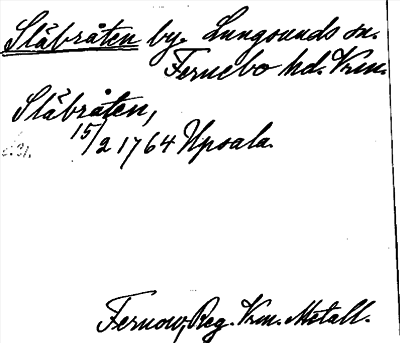 Slåbråten by. Lungsunds sn.
Fernebo hd. Vrm.
Slåbråten,
15/2 1764 Upsala.
Fernow, Reg. Vrm. Metall.